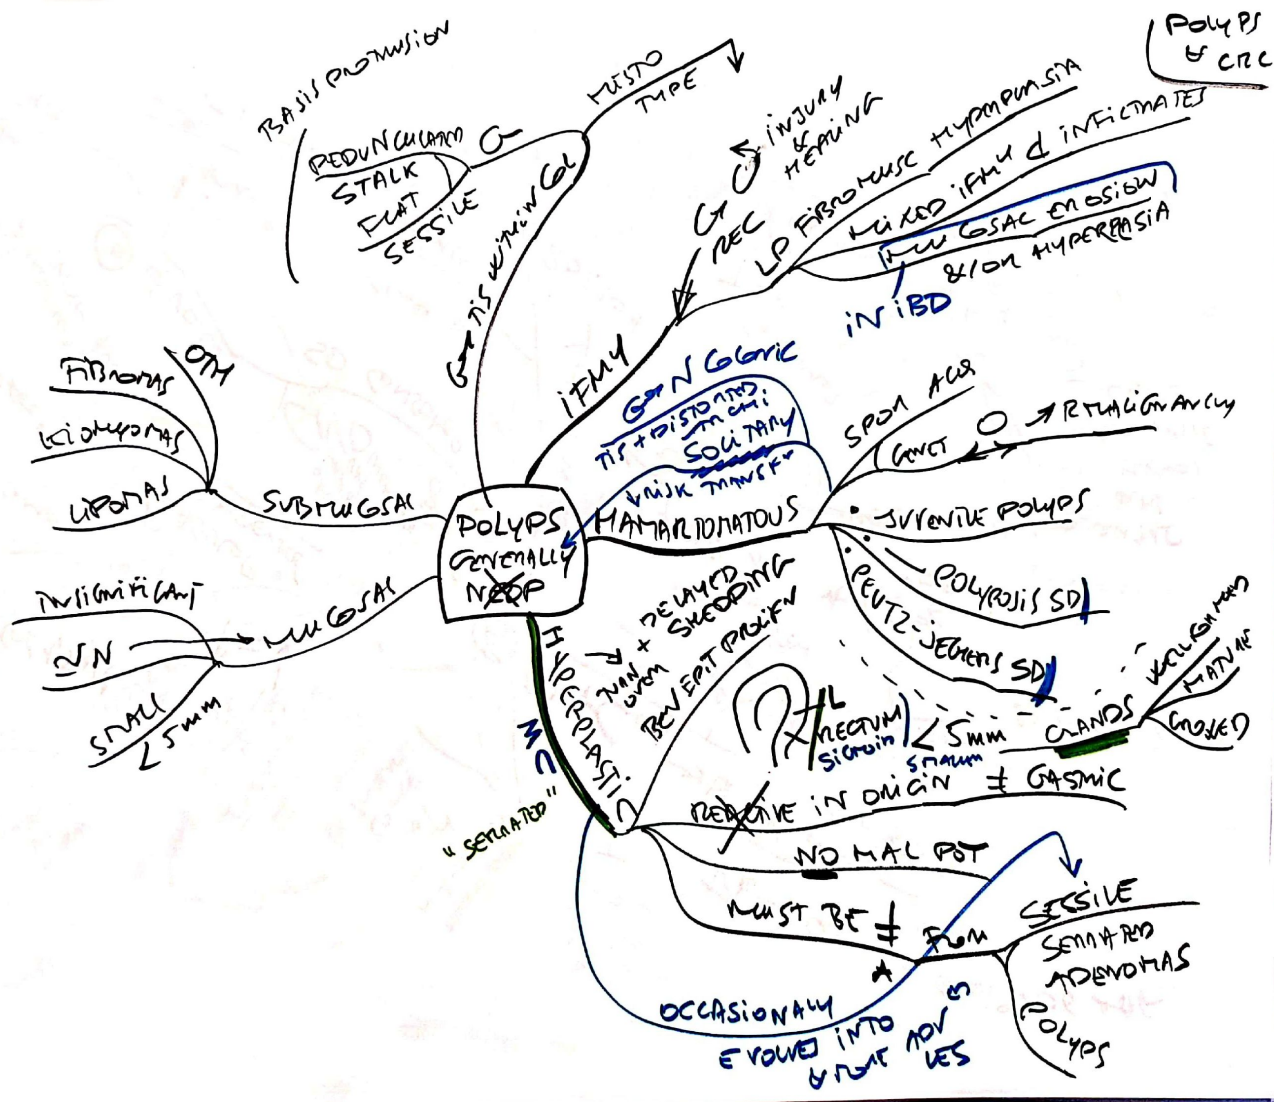 POLYPS
& CRC
BASIS PROTRUSION
PEDUNCULATED
STALK
FLAT
SESSILE
HISTO
TYPE
TIS WITHIN COL
INJURY
&
HEALING
REC
IFMY
LP FIBROMUSC HYPERPLASIA
MIXED IFMY INFILTRATES
MUCOSAL EROSION
&/OR HYPERPLASIA
IN IBD
N COLONIC
TIS + DISTORTED
ARCHI
SOLITARY
↓ RISK TRANSF
FIBROMAS
OTH
LEIOMYOMAS
LIPOMAS
SUBMUCOSAL
POLYPS
GENERALLY
NEOP
HAMARTOMATOUS
SPOR ACQ
GENET
R MALIGNANCY
JUVENILE POLYPS
POLYPOSIS SD
PEUTZ-JEGHERS SD
INSIGNIFICANT
≃ N
MUCOSAL
SMALL
< 5mm
HYPERPLASTIC
MC
"SERRATED"
TURN
OVER
+
DELAYED
SHEDDING
BEN EPIT PROLIFN
L
RECTUM
SIGMOID
< 5mm
SMALLER
GLANDS
WELL FORMED
MATURE
CROWDED
REACTIVE IN ORIGIN ≠ GASTRIC
NO MAL POT
MUST BE ≠ FROM
SESSILE
SERRATED
ADENOMAS
POLYPS
OCCASIONALLY
EVOLVED INTO
MORE ADV
LES